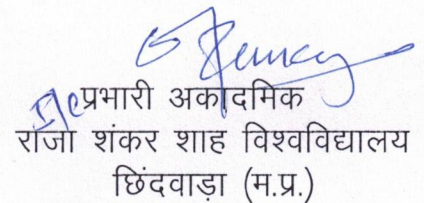 I/c प्रभारी अकादमिक
राजा शंकर शाह विश्वविद्यालय
छिंदवाड़ा (म.प्र.)